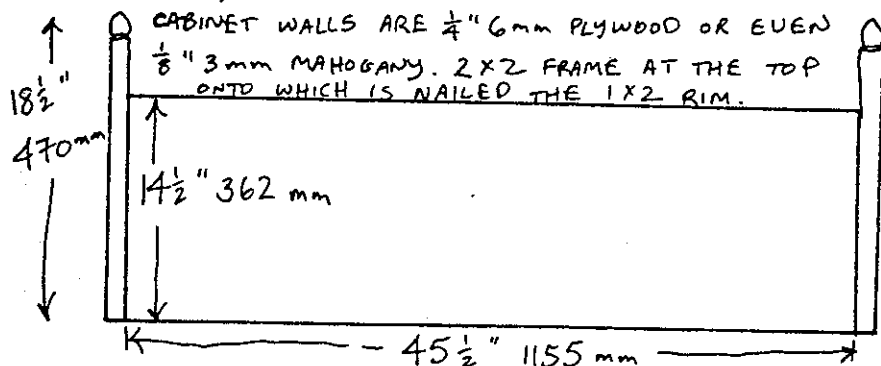 CABINET WALLS ARE 1/4" 6mm PLYWOOD OR EVEN
1/8" 3mm MAHOGANY. 2X2 FRAME AT THE TOP
ONTO WHICH IS NAILED THE 1X2 RIM.
18 1/2"
470mm
14 1/2" 362 mm
45 1/2" 1155 mm